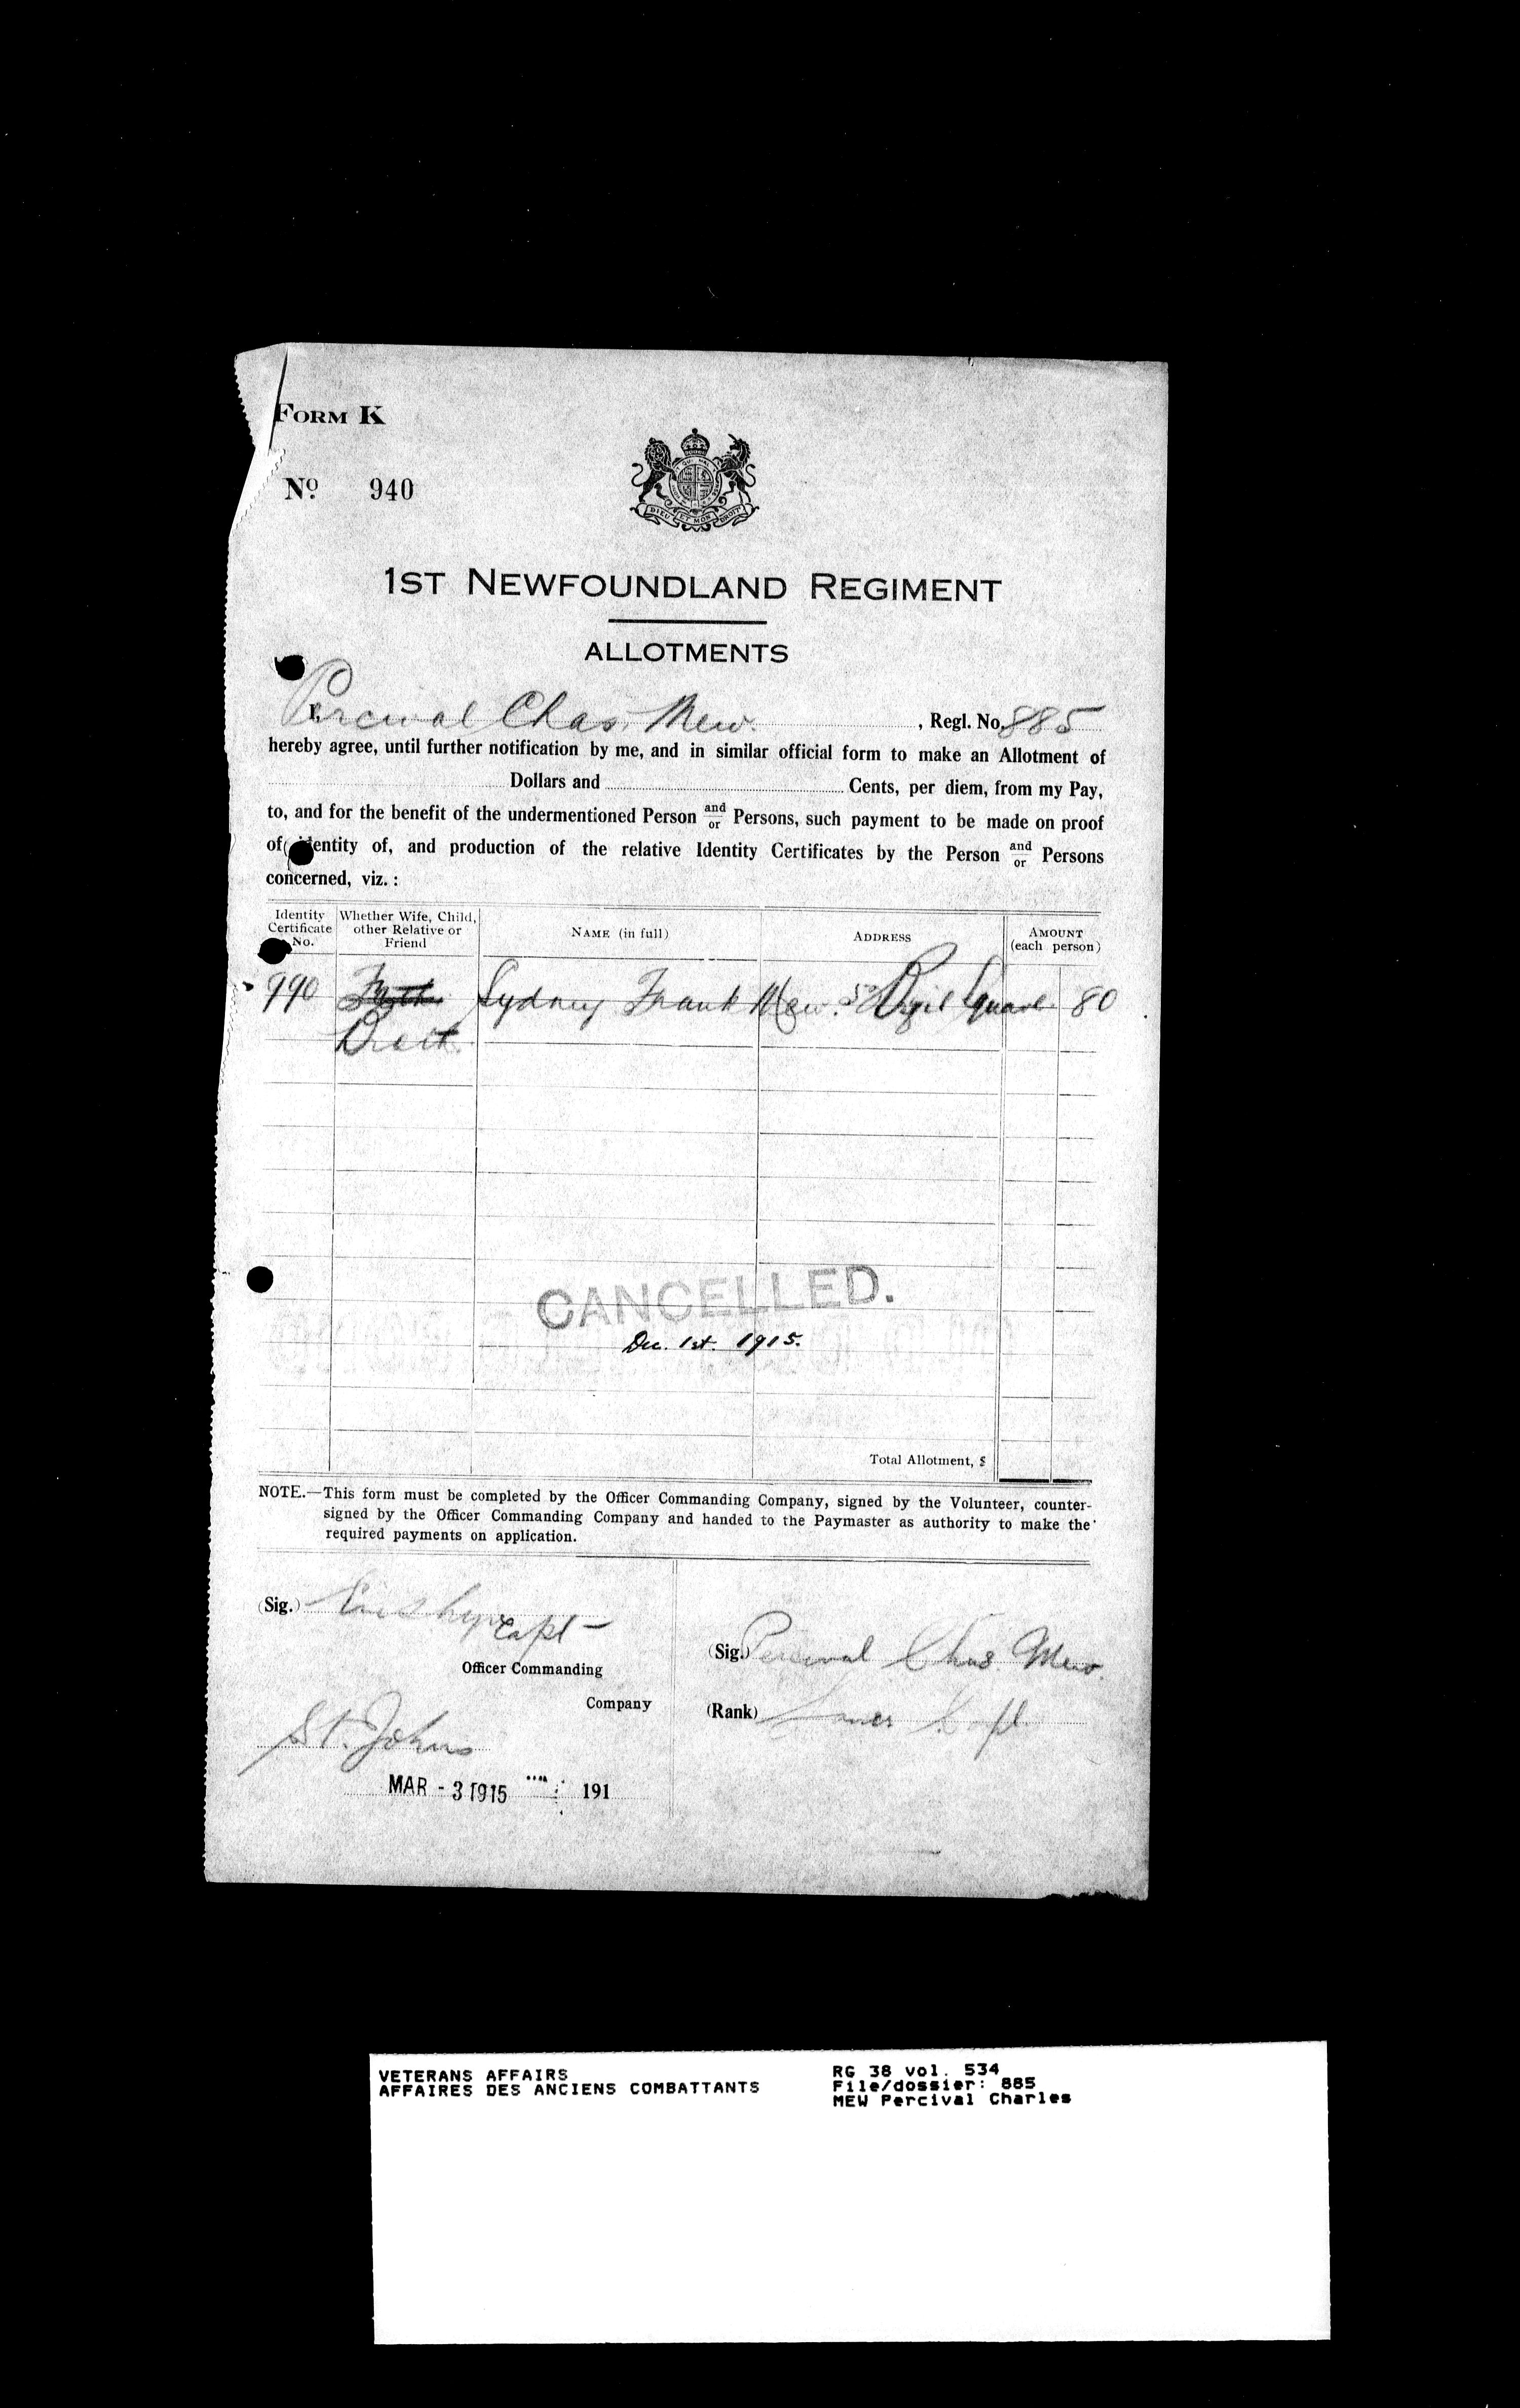 FORM K
Nº 940
DIEU ET MON DROIT
1ST NEWFOUNDLAND REGIMENT
ALLOTMENTS
I, Percival Chas. Mew. , Regl. No. 885
hereby agree, until further notification by me, and in similar official form to make an Allotment of
Dollars and Cents, per diem, from my Pay,
to, and for the benefit of the undermentioned Person and/or Persons, such payment to be made on proof
of identity of, and production of the relative Identity Certificates by the Person and/or Persons
concerned, viz. :
Identity Certificate No. Whether Wife, Child, other Relative or Friend NAME (in full) ADDRESS AMOUNT (each person)
990 Sydney Frank Mew. Square 80
CANCELLED.
Dec. 1st. 1915.
Total Allotment, $
NOTE.—This form must be completed by the Officer Commanding Company, signed by the Volunteer, counter-
signed by the Officer Commanding Company and handed to the Paymaster as authority to make the
required payments on application.
(Sig.) Capt
Officer Commanding
Company
(Sig.) Percival Chas. Mew.
(Rank) Lance Corpl
St. Johns
MAR - 3 1915 191
VETERANS AFFAIRS
AFFAIRES DES ANCIENS COMBATTANTS
RG 38 vol. 534
File/dossier: 885
MEW Percival Charles